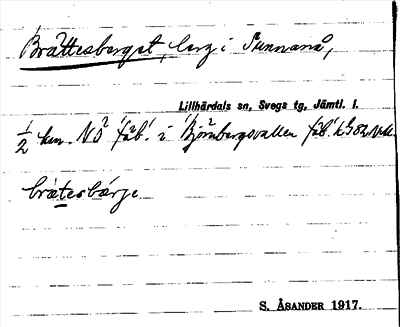 Bråttesberget, berg i Sunnanå,
Lillhärdals sn, Svegs tg, Jämtl. l.
½ km NÖ 'fäb'. i 'Björnbergsvallen fäb.'
brätesbärje
S. ÅSANDER 1917.